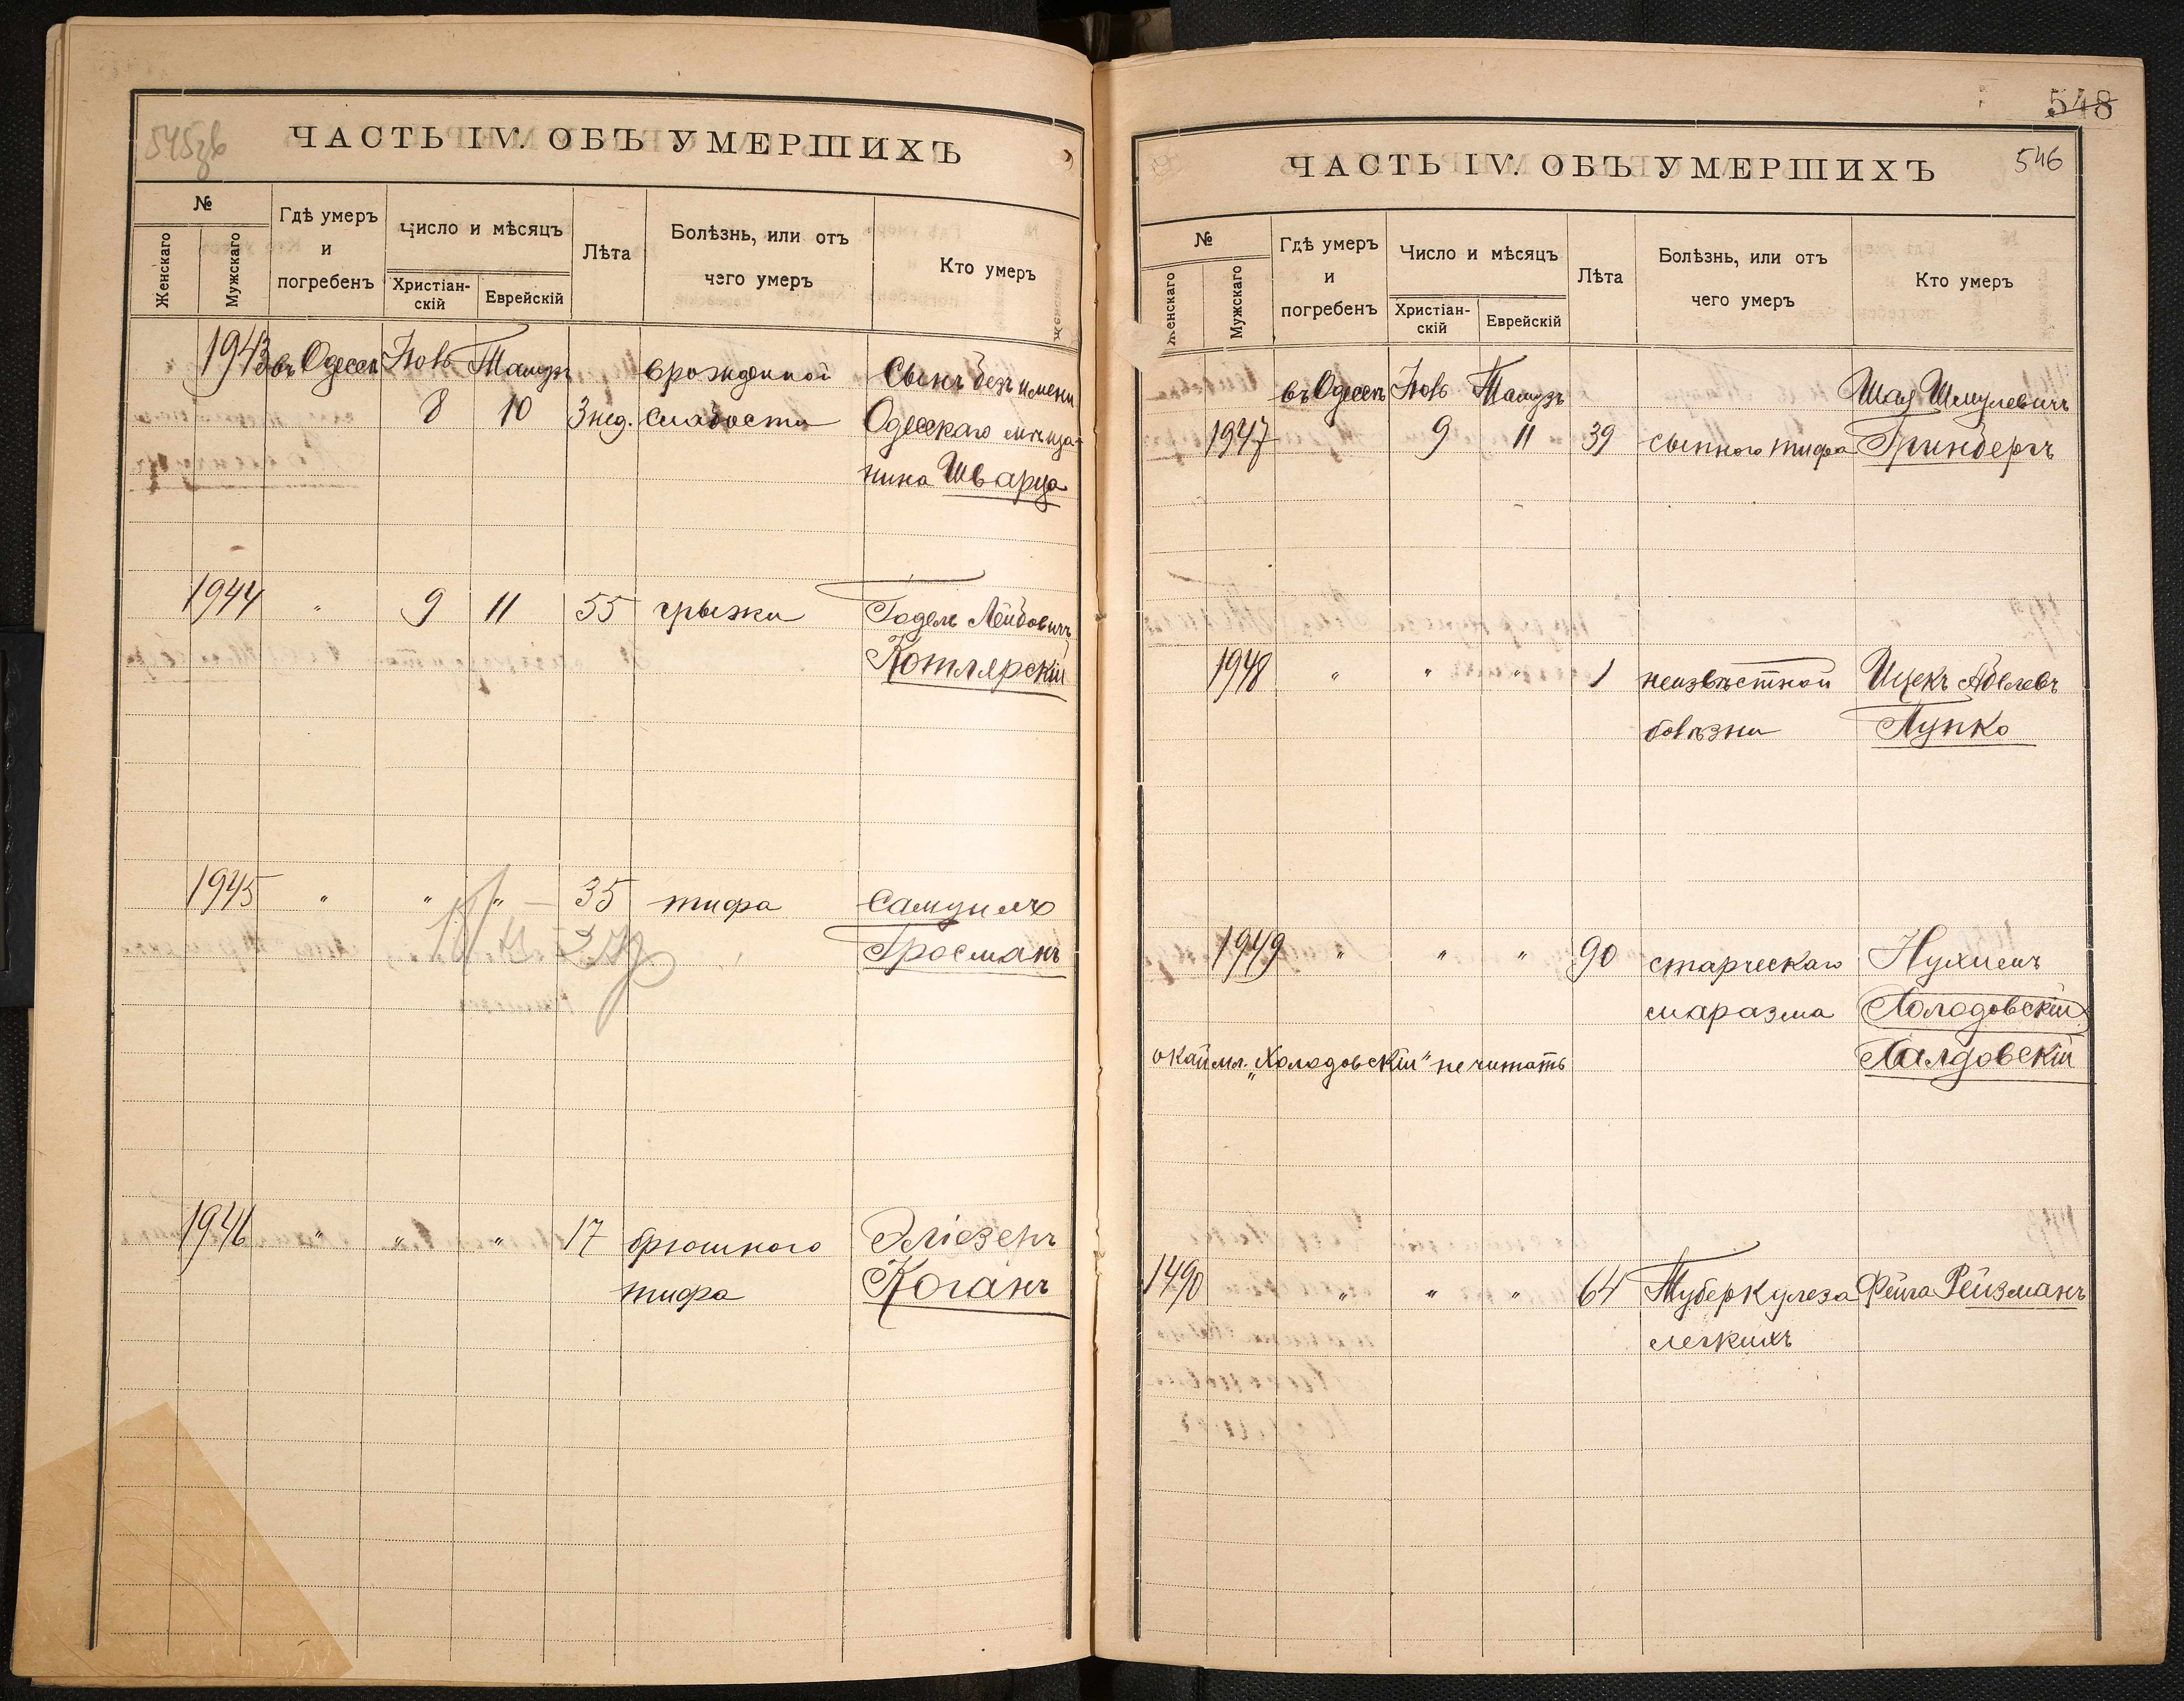 545зв
ЧАСТЬ IV. ОБЪ УМЕРШИХЪ
№
Женскаго
Мужскаго
Гдѣ умеръ
и
погребенъ
Число и мѣсяцъ
Христіан-
скій
Еврейскій
Лѣта
Болѣзнь, или отъ
чего умеръ
Кто умеръ
1943 въ Одессѣ Іюль Тамузъ врожденной Сынъ безъ имени
8 10 3 нед. слабости Одесскаго мѣща-
нина Шварца
1944 " 9 11 55 грыжи Годель Лейбовичъ
Котлярскій
1945 " " " 35 тифа Самуилъ
Гросманъ
1946 " " " 17 брюшного Эліезеръ
тифа Коганъ
548
546
ЧАСТЬ IV. ОБЪ УМЕРШИХЪ
№
Женскаго
Мужскаго
Гдѣ умеръ
и
погребенъ
Число и мѣсяцъ
Христіан-
скій
Еврейскій
Лѣта
Болѣзнь, или отъ
чего умеръ
Кто умеръ
въ Одессѣ Іюль Тамузъ Шая Шмулевичъ
1947 9 11 39 сыпного тифа Гринбергъ
1948 " " " 1 неизвѣстной Ицекъ Абелевъ
болѣзни Лупко
1949 " " " 90 старческаго Нухимъ
маразма Холодовскій
окаймл. „Холодовскій" не читать Халдовскій
1490 " " " 64 Туберкулеза Фейга Рейзманъ
легкихъ